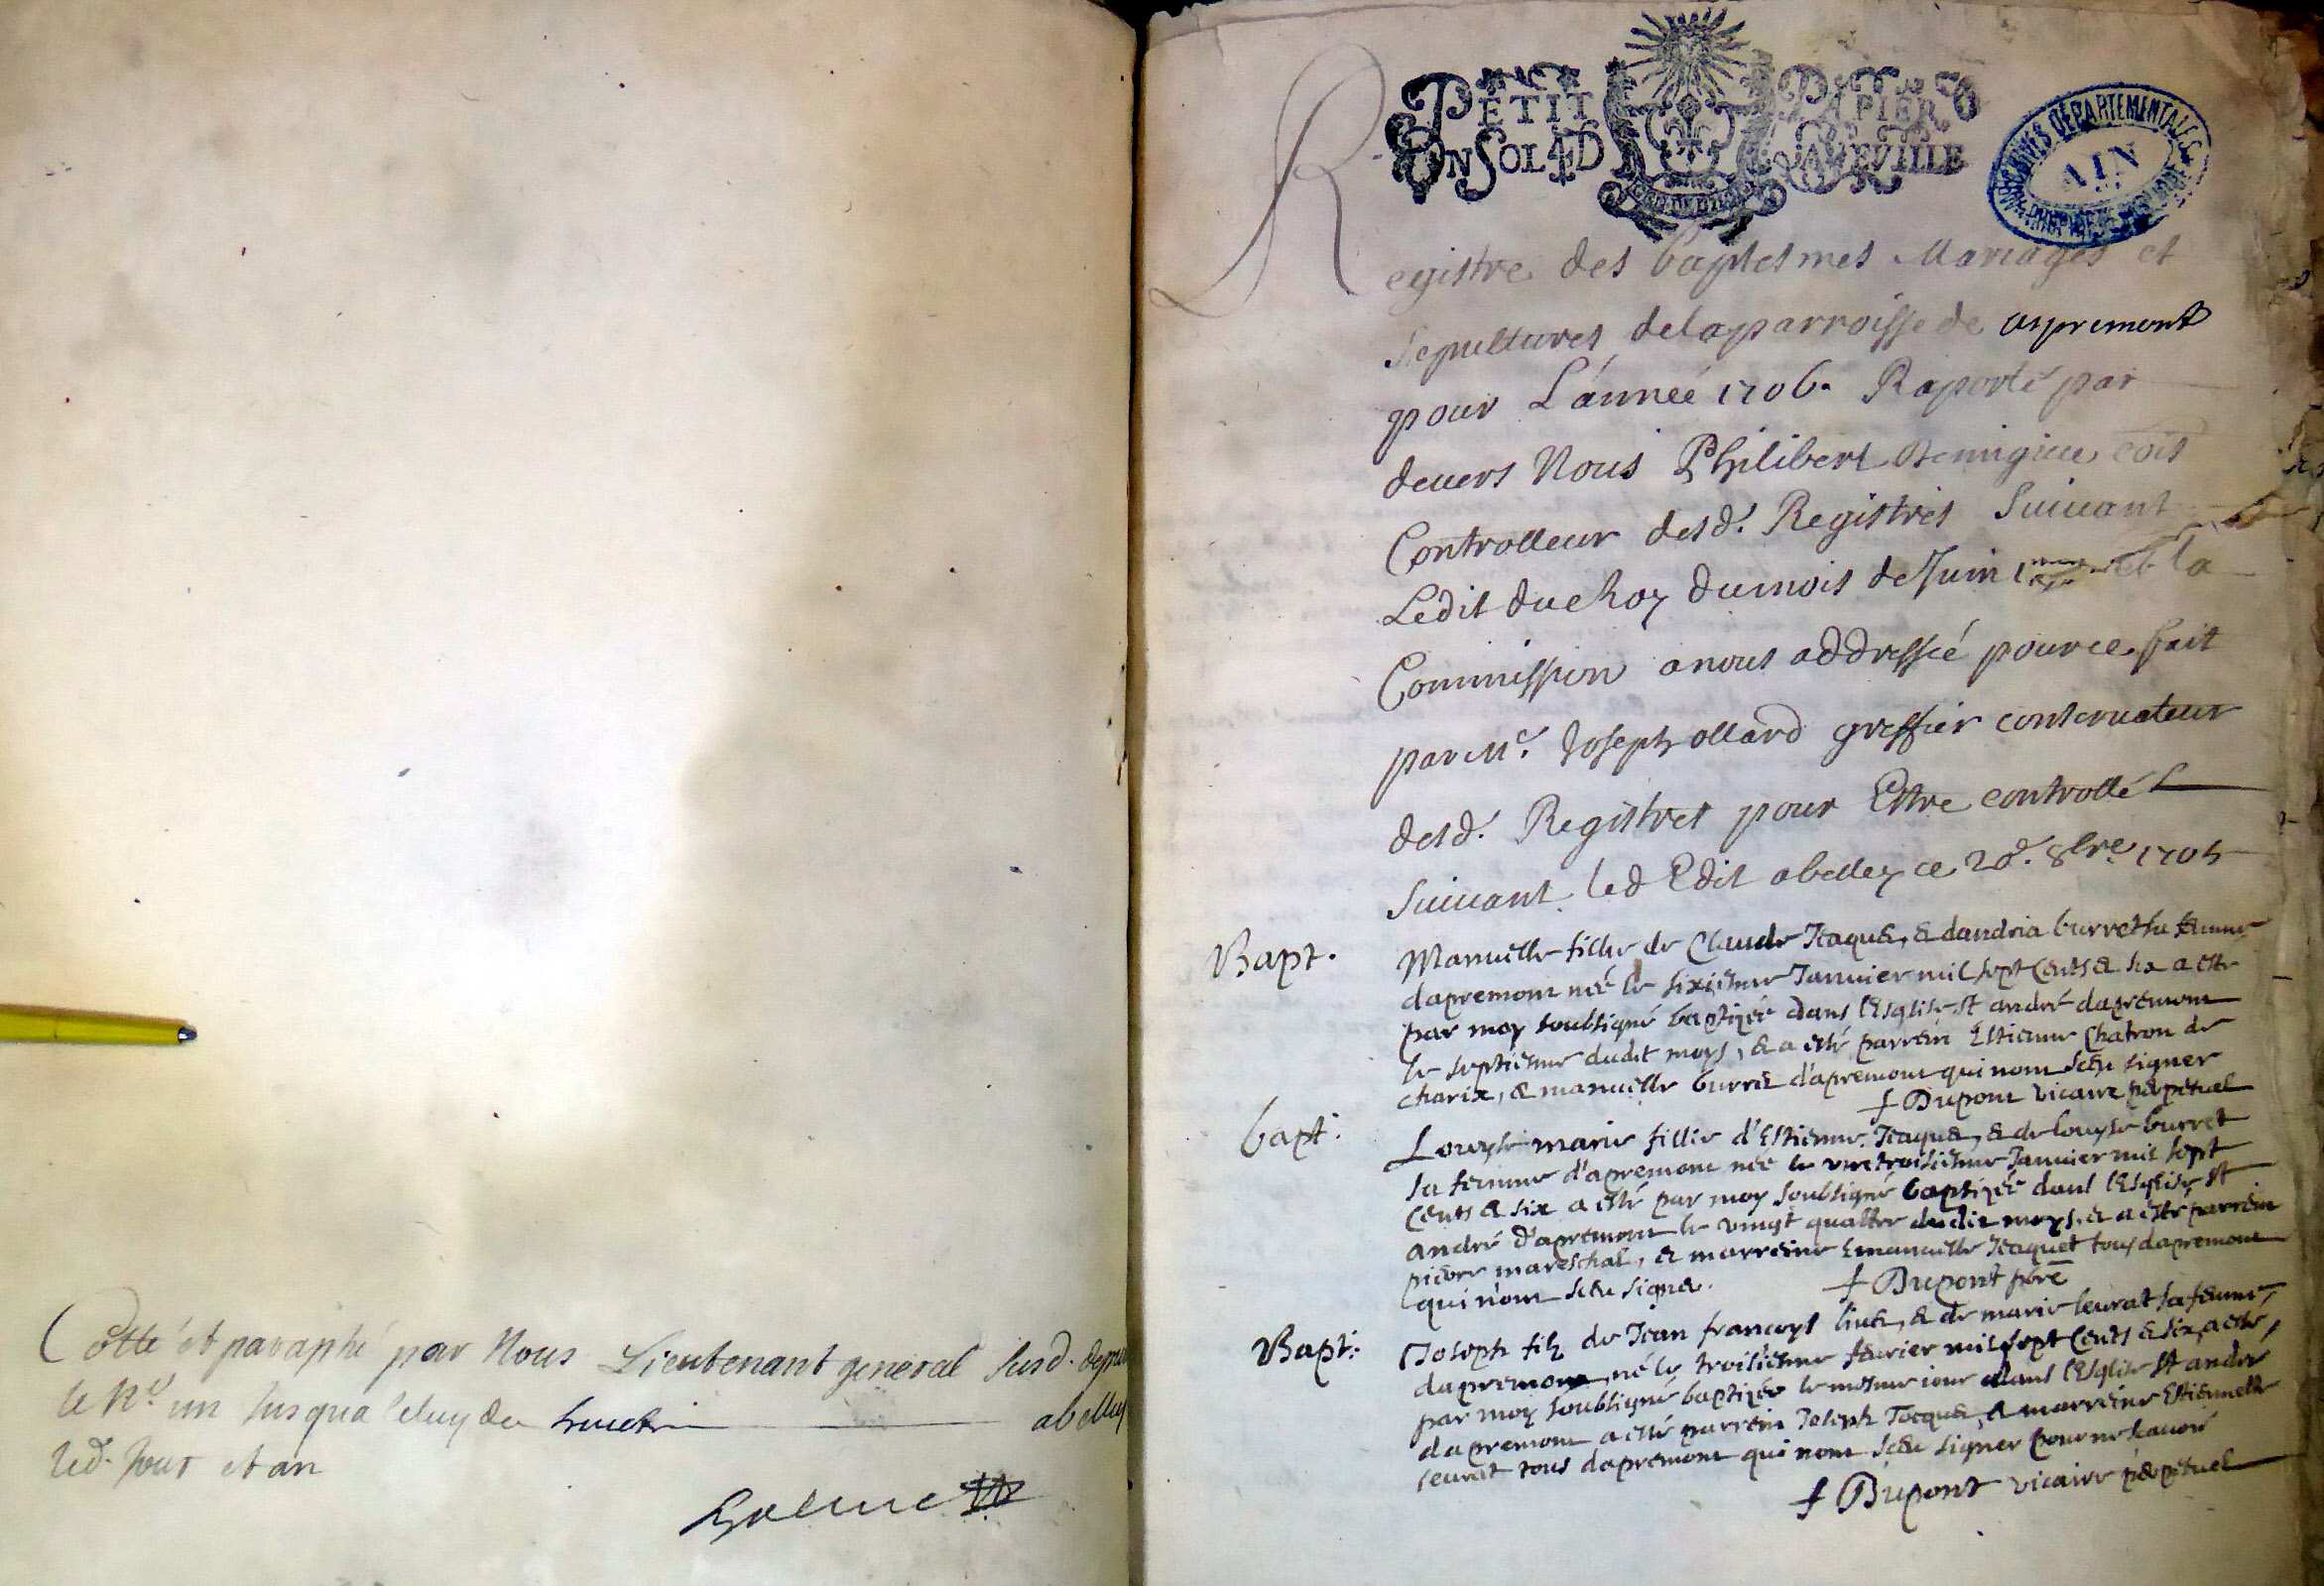 Cotté et paraphé par Nous Lieutenant general susd. depuis
le N.º un jusqua celuy de huict abelley
led. Jour et an
PETIT PAPIER
UN SOL 4 D LA FEVILLE
ARCHIVES DÉPARTEMENTALES
AIN
Registre des baptesmes Mariages et
Sepultures de la parroisse de aspremont
pour L'année 1706. Raporté par
devers Nous Philibert
Controlleur desd. Registres Suivant
Ledit du Roy du mois de Juin et la
Commission a nous addressée pour ce fait
par Mᵉ. Joseph ollard greffier conservateur
desd. Registres pour Estre controllé
Suivant led Edit abelley ce 20ᵉ. 8bre 1705
Bapt. Manuelle fillie de Claude Jaquet, & dandria burret sa femme
dapremont née le sixiesme Janvier mil sept cents & six a esté
par moy soubsigné baptizée dans l'Esglise St andré dapremont
le septiesme dudit moys, & a esté parrein Estienne Chatron de
charix, & manuelle burret d'apremont qui nont sceu signer
† Dupont vicaire perpetuel
bapt. Louyse marie fillie d'Estienne Jaquet, & de louyse burret
sa femme d'apremont née le vintroisiesme Janvier mil sept
cents & six a esté par moy soubsigné baptizée dans l'Esglise St
andré d'apremont le vingt quattre dudit moys, & a esté parrein
pierre mareschal, & marreine Emanuelle Jaquet tous dapremont
qui n'ont sceu signer. † Dupont
Bapt. Joseph filz de Jean francoys & de marie leurat sa femme,
dapremont né le troisiesme febvrier mil sept cents & six a esté,
par moy soubsigné baptizée le mesme iour dans l'Esglise St andré
dapremont a esté parrein Joseph Jocquet, & marreine Estiennette
leurat tous dapremont qui nont sceu signer pour ne scavoir
† Dupont vicaire perpetuel